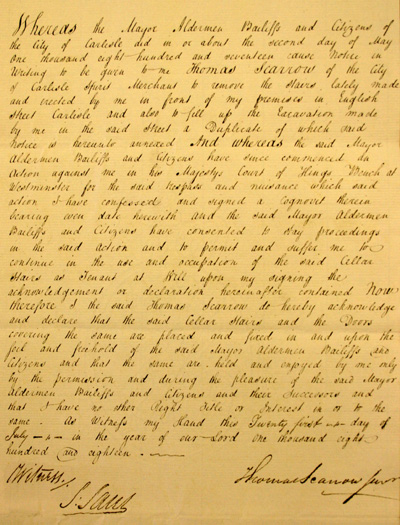 Whereas the Mayor Aldermen Bailiffs and Citizens of
the City of Carlisle did in or about the second day of May
One thousand eight hundred and seventeen cause Notice in
Writing to be given to me Thomas Scarrow of the City
of Carlisle Spirit Merchant to remove the Stairs lately made
and erected by me in front of my premises in English
Street Carlisle and also to fill up the Excavation made
by me in the said Street a Duplicate of which said
Notice is hereunto annexed And whereas the said Mayor
Aldermen Bailiffs and Citizens have since commenced an
Action against me in his Majestys Court of Kings Bench at
Westminster for the said trespass and nuisance which said
action I have confessed and signed a Cognovit therein
bearing even date herewith and the said Mayor Aldermen
Bailiffs and Citizens have consented to stay proceedings
in the said action and to permit and suffer me to
continue in the use and occupation of the said Cellar
Stairs as Tenant at Will upon my signing the
acknowledgement or declaration hereinafter contained Now
therefore I the said Thomas Scarrow do hereby acknowledge
and declare that the said Cellar Stairs and the Doors
covering the same are placed and fixed in and upon the
soil and freehold of the said Mayor Aldermen Bailiffs and
Citizens and that the same are held and enjoyed by me only
by the permission and during the pleasure of the said Mayor
Aldermen Bailiffs and Citizens and their Successors and
that I have no other Right Title or Interest in or to the
same. As Witness my Hand this Twenty first day of
July in the year of our Lord One thousand eight
hundred and eighteen.
Witness.
Thomas Scarrow Junr